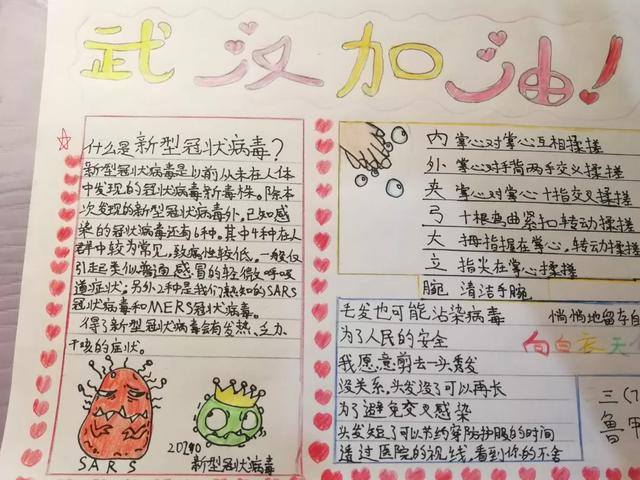 武汉加油!
什么是新型冠状病毒?
新型冠状病毒是以前从未在人体
中发现的冠状病毒新毒株。除本
次发现的新型冠状病毒外,已知感
染的冠状病毒还有6种。其中4种在人
群中较为常见,致病性较低,一般仅
引起类似普通感冒的轻微呼吸
道症状。另外2种是我们熟知的SARS
冠状病毒和MERS冠状病毒。
得了新型冠状病毒会有发热、乏力、
干咳的症状。
SARS
新型冠状病毒
内 掌心对掌心互相揉搓
外 掌心对手背两手交叉揉搓
夹 掌心对掌心十指交叉揉搓
弓 十根弯曲紧扣转动揉搓
大 拇指握在掌心,转动揉搓
立 指尖在掌心揉搓
腕 清洁手腕
毛发也可能沾染病毒
为了人民的安全
我愿意剪去一头秀发
没关系,头发没了可以再长
为了避免交叉感染
头发短了可以节约穿防护服的时间
透过医院的视线,看到你的不舍
悄悄地留存自
向白衣天
三(7
鲁甲